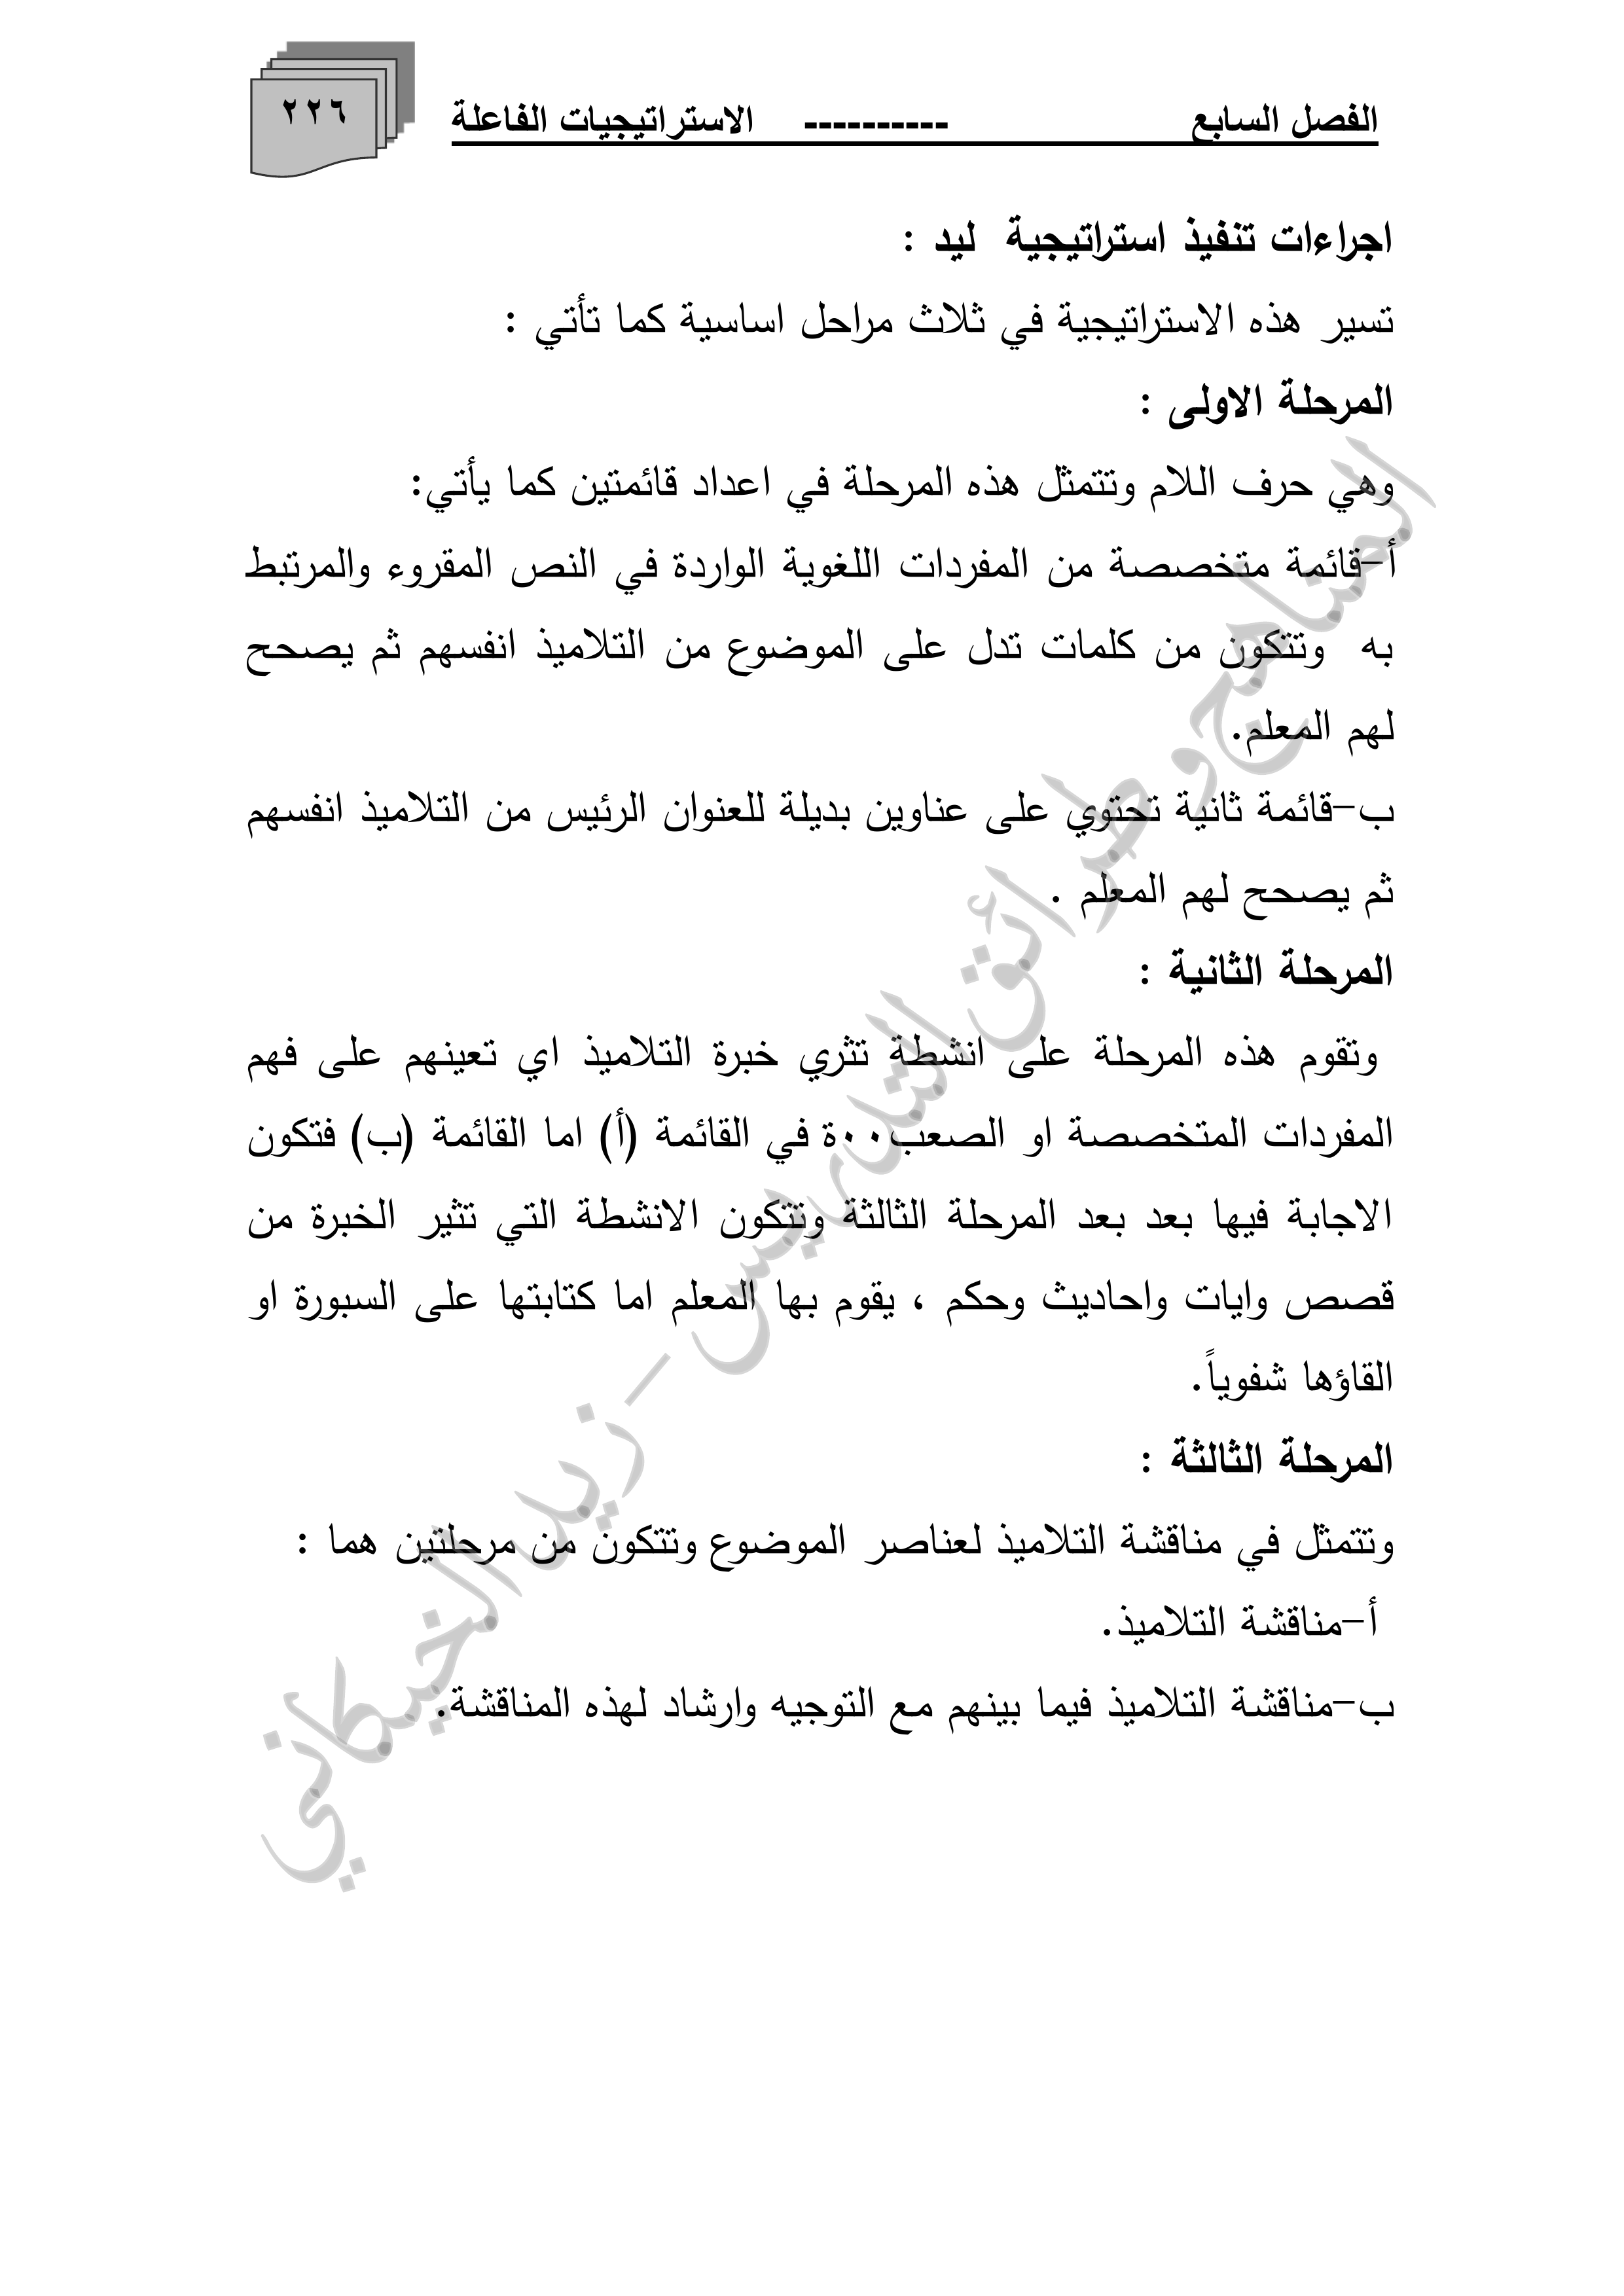 الفصل السابع ---------- الاستراتيجيات الفاعلة
٢٢٦
اجراءات تنفيذ استراتيجية ليد :
تسير هذه الاستراتيجية في ثلاث مراحل اساسية كما تأتي :
المرحلة الاولى :
وهي حرف اللام وتتمثل هذه المرحلة في اعداد قائمتين كما يأتي:
أ–قائمة متخصصة من المفردات اللغوية الواردة في النص المقروء والمرتبط
به وتتكون من كلمات تدل على الموضوع من التلاميذ انفسهم ثم يصحح
لهم المعلم.
ب–قائمة ثانية تحتوي على عناوين بديلة للعنوان الرئيس من التلاميذ انفسهم
ثم يصحح لهم المعلم .
المرحلة الثانية :
وتقوم هذه المرحلة على انشطة تثري خبرة التلاميذ اي تعينهم على فهم
المفردات المتخصصة او الصعب٠٠ة في القائمة (أ) اما القائمة (ب) فتكون
الاجابة فيها بعد بعد المرحلة الثالثة وتتكون الانشطة التي تثير الخبرة من
قصص وايات واحاديث وحكم ، يقوم بها المعلم اما كتابتها على السبورة او
القاؤها شفوياً.
المرحلة الثالثة :
وتتمثل في مناقشة التلاميذ لعناصر الموضوع وتتكون من مرحلتين هما :
أ–مناقشة التلاميذ.
ب–مناقشة التلاميذ فيما بينهم مع التوجيه وارشاد لهذه المناقشة.
المناهج وطرائق التدريس – زيد الخيكاني